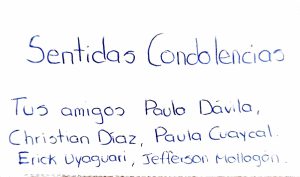 Sentidas Condolencias
Tus amigos Paulo Dávila,
Christian Díaz, Paula Cuaycal.
Erick Uyaguari, Jefferson Mollogón.